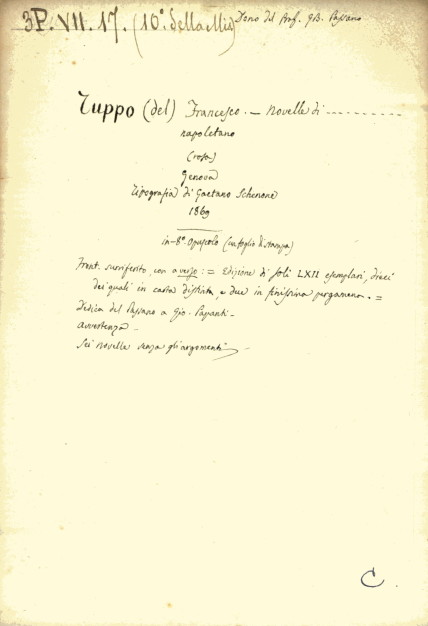 3P. VII. 17. (10º della Mis)
Dono del Prof. GB. Passano
Tuppo (del) Francesco. — Novelle di ------------
napoletano
(rosa)
Genova
Tipografia di Gaetano Schenone
1869
in-8º Opuscolo (un foglio di stampa)
Front. surriferito, con a verso := Edizione di soli LXII esemplari, dieci
dei quali in carta distinta, e due in finissima pergamena. =
Dedica del Passano a Gio. Papanti -
Avvertenza -
Sei novelle senza gli argomenti
C.